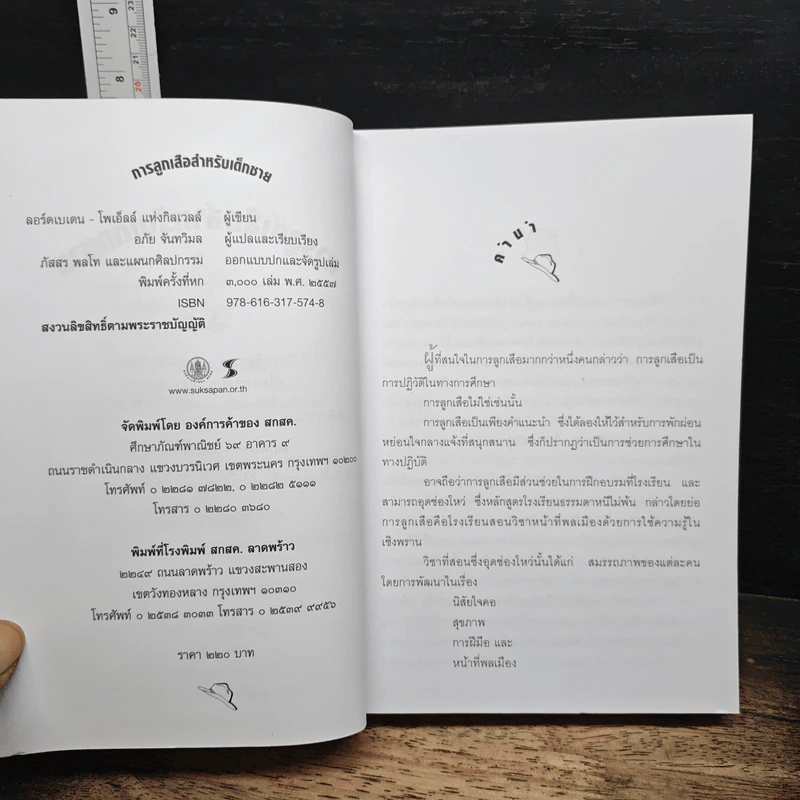 9
8
23
22
21
20
การลูกเสือสำหรับเด็กชาย
ลอร์ดเบเดน - โพเอ็ลล์ แห่งกิลเวลล์ ผู้เขียน
อภัย จันทวิมล ผู้แปลและเรียบเรียง
ภัสสร พลโท และแผนกศิลปกรรม ออกแบบปกและจัดรูปเล่ม
พิมพ์ครั้งที่หก ๓,๐๐๐ เล่ม พ.ศ. ๒๕๕๗
ISBN 978-616-317-574-8
สงวนลิขสิทธิ์ตามพระราชบัญญัติ
www.suksapan.or.th
จัดพิมพ์โดย องค์การค้าของ สกสค.
ศึกษาภัณฑ์พาณิชย์ ๖๙ อาคาร ๙
ถนนราชดำเนินกลาง แขวงบวรนิเวศ เขตพระนคร กรุงเทพฯ ๑๐๒๐๐
โทรศัพท์ ๐ ๒๒๘๑ ๗๘๒๒, ๐ ๒๒๘๒ ๕๑๑๑
โทรสาร ๐ ๒๒๘๐ ๓๖๘๐
พิมพ์ที่โรงพิมพ์ สกสค. ลาดพร้าว
๒๒๔๙ ถนนลาดพร้าว แขวงสะพานสอง
เขตวังทองหลาง กรุงเทพฯ ๑๐๓๑๐
โทรศัพท์ ๐ ๒๕๓๘ ๓๐๓๓ โทรสาร ๐ ๒๕๓๙ ๙๙๕๖
ราคา ๒๒๐ บาท
คำนำ
ผู้ที่สนใจในการลูกเสือมากกว่าหนึ่งคนกล่าวว่า การลูกเสือเป็น
การปฏิวัติในทางการศึกษา
การลูกเสือไม่ใช่เช่นนั้น
การลูกเสือเป็นเพียงคำแนะนำ ซึ่งได้ลองให้ไว้สำหรับการพักผ่อน
หย่อนใจกลางแจ้งที่สนุกสนาน ซึ่งก็ปรากฏว่าเป็นการช่วยการศึกษาใน
ทางปฏิบัติ
อาจถือว่าการลูกเสือมีส่วนช่วยในการฝึกอบรมที่โรงเรียน และ
สามารถอุดช่องโหว่ ซึ่งหลักสูตรโรงเรียนธรรมดาหนีไม่พ้น กล่าวโดยย่อ
การลูกเสือคือโรงเรียนสอนวิชาหน้าที่พลเมืองด้วยการใช้ความรู้ใน
เชิงพราน
วิชาที่สอนซึ่งอุดช่องโหว่นั้นได้แก่ สมรรถภาพของแต่ละคน
โดยการพัฒนาในเรื่อง
นิสัยใจคอ
สุขภาพ
การฝีมือ และ
หน้าที่พลเมือง